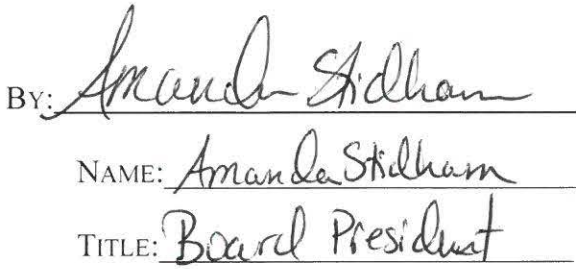 BY: Amanda Stidham
NAME: Amanda Stidham
TITLE: Board President